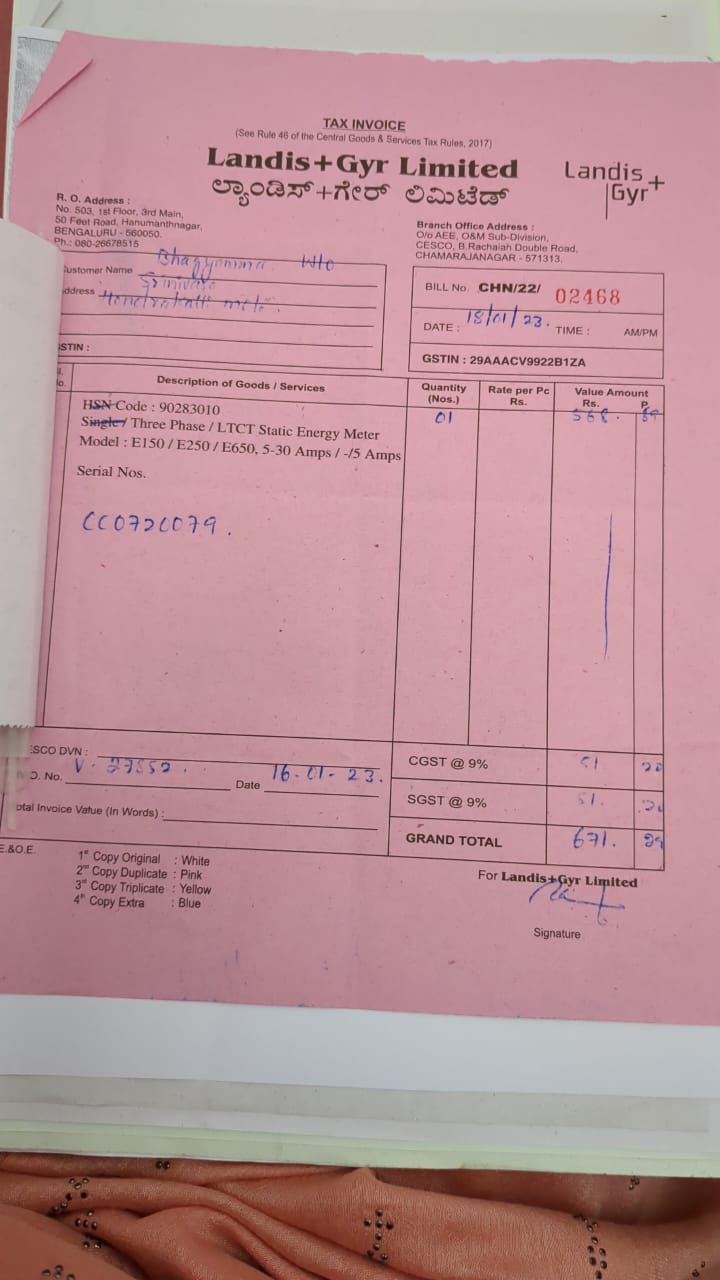 TAX INVOICE
(See Rule 46 of the Central Goods & Services Tax Rules, 2017)
Landis+Gyr Limited
ಲ್ಯಾಂಡಿಸ್+ಗೇರ್ ಲಿಮಿಟೆಡ್
Landis+
Gyr
R. O. Address :
No. 503, 1st Floor, 3rd Main,
50 Feet Road, Hanumanthnagar,
BENGALURU - 560050.
Ph.: 080-26678515
Branch Office Address :
O/o AEE, O&M Sub-Division,
CESCO, B.Rachaiah Double Road,
CHAMARAJANAGAR - 571313.
ustomer Name Bhagyamma W/o
ddress
STIN :
BILL No. CHN/22/ 02468
DATE : 18/01/23. TIME : AM/PM
GSTIN : 29AAACV9922B1ZA
Description of Goods / Services
Quantity (Nos.)
Rate per Pc Rs.
Value Amount
Rs. P.
HSN Code : 90283010
Single / Three Phase / LTCT Static Energy Meter
Model : E150 / E250 / E650, 5-30 Amps / -/5 Amps
01
568.
Serial Nos.
CC0720079.
ESCO DVN :
O. No. Date 16-01-23.
otal Invoice Value (In Words) :
CGST @ 9% 51
SGST @ 9% 51.
GRAND TOTAL 671.
E.&O.E.
1st Copy Original : White
2nd Copy Duplicate : Pink
3rd Copy Triplicate : Yellow
4th Copy Extra : Blue
For Landis+Gyr Limited
Signature